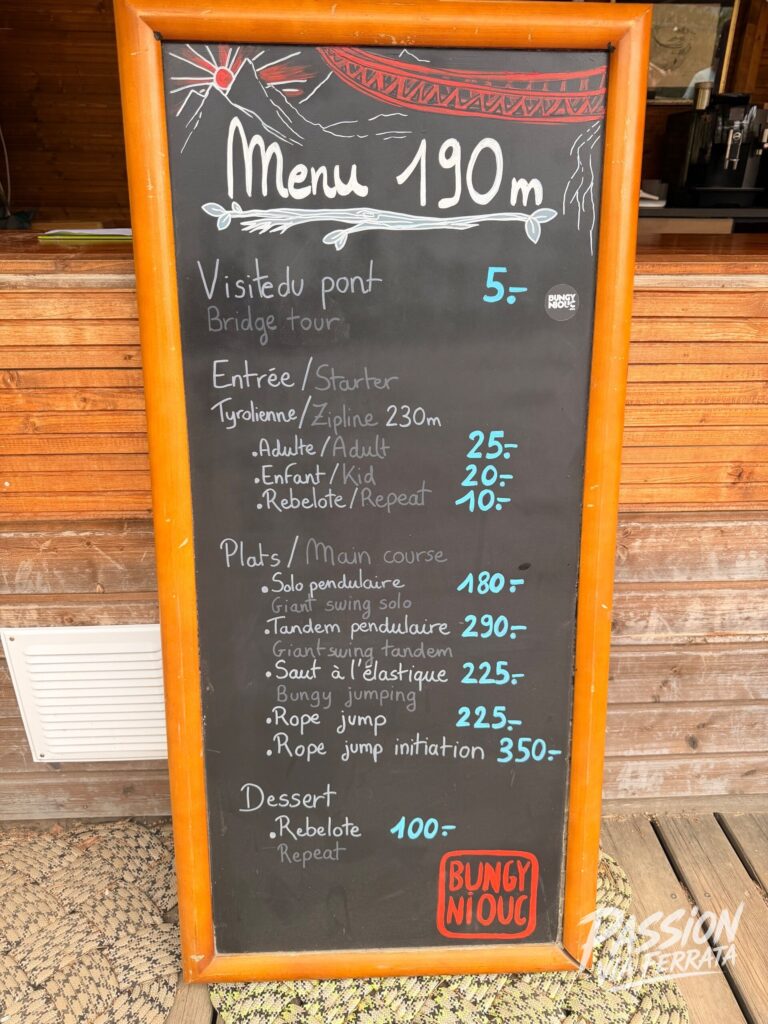 Menu 190m
Visite du pont 5.-
Bridge tour
BUNGY
NIOUC
Entrée / Starter
Tyrolienne / Zipline 230m
.Adulte / Adult 25.-
.Enfant / Kid 20.-
.Rebelote / Repeat 10.-
Plats / Main course
.Solo pendulaire 180.-
Giant swing solo
.Tandem pendulaire 290.-
Giant swing tandem
.Saut à l'élastique 225.-
Bungy jumping
.Rope jump 225.-
.Rope jump initiation 350.-
Dessert
.Rebelote 100.-
Repeat
BUNGY
NIOUC
PASSION
VIA FERRATA